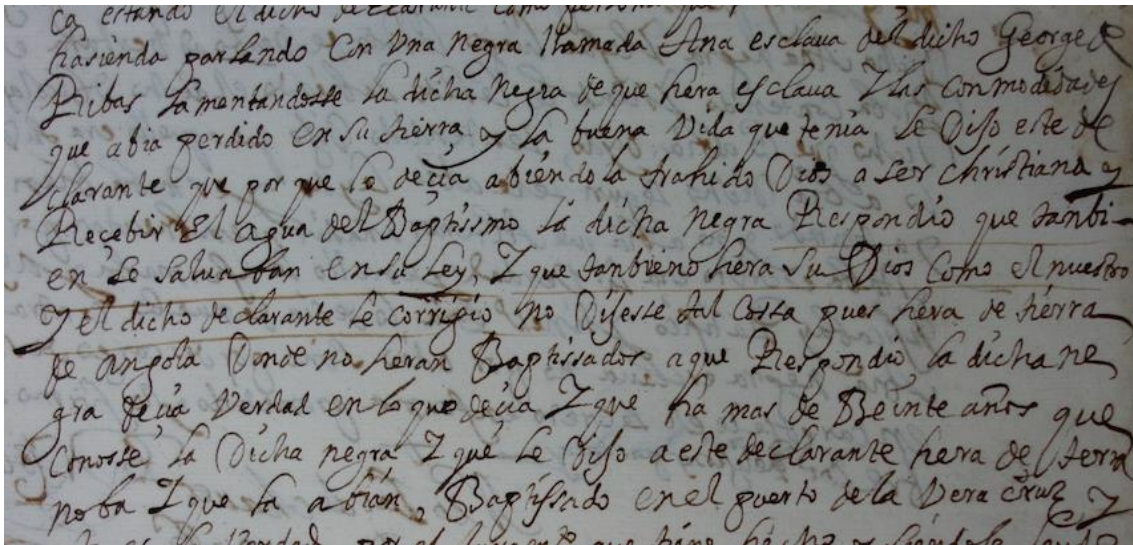 ca estando el dicho declarante como persona que
hasienda parlando Con Vna negra llamada Ana esclaua del dicho George de
Ribas lamentandosse la dicha Negra de que hera esclaua Y las conmodidades
que abia perdido en su tierra y la buena Vida que tenia Le Dijo este de
clarante que por que lo deçia abiendola trahido Dios a ser christiana y
Recebir El agua del Baptissmo la dicha negra Respondio que tambi-
en se saluaban en su Ley, Y que tanbueno hera su Dios Como el nuestro
y el dicho declarante le corrigio no Dijesse tal Cossa pues hera de tierra
de angola Donde no heran Baptissados a que Respondio la dicha ne
gra deçia Verdad en lo que deçia Y que ha mas de Beinte años que
Conosse la Dicha negra Y que le Dijo a este declarante hera de terra
noba Y que la abian, Baptissado en el puerto de la Vera Cruz Y
Verdad por el juramento que tiene hecho y siendole